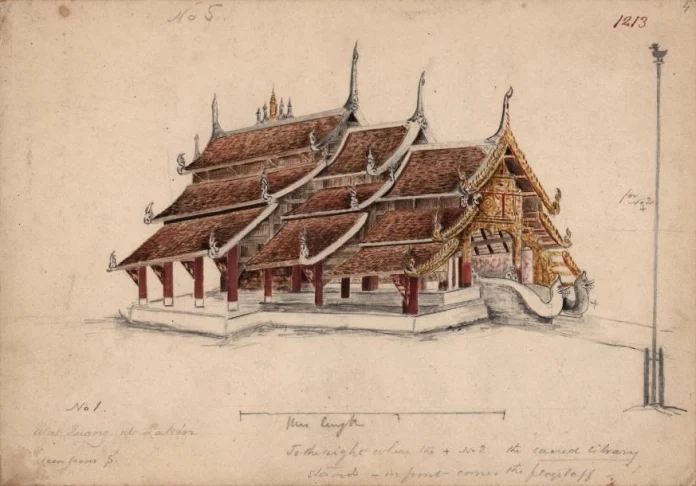 No 5
1213
4
for
No 2
+
+
No 1.
Wat Luang at Lakon
seen from S.
this length
To the right where the + No 2. the sacred library
stands - in front comes the flagstaff